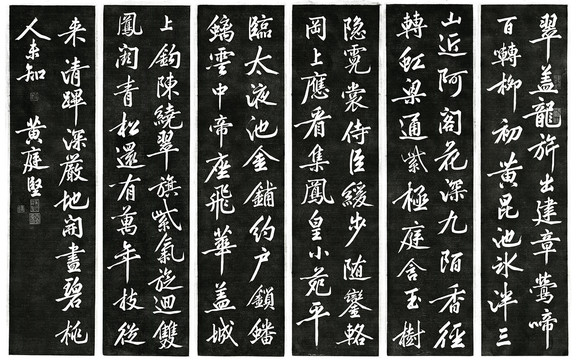 翠蓋龍旂出建章鶯啼
百轉柳初黃昆池冰泮三
山近阿閣花深九陌香徑
轉虹梁通紫極庭含玉樹
隐霓裳侍臣緩步随鑾輅
岡上應看集鳳皇小苑平
臨太液池金鋪約户鎖蟠
螭雲中帝座飛華蓋城
上鈎陳繞翠旗紫氣旋迴雙
鳳闕青松還有萬年枝從
来清蹕深嚴地開盡碧桃
人未知 黃庭堅